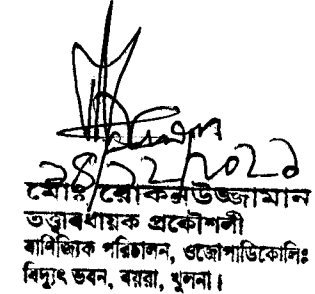 ২৪/১২/২০২১
মোঃ রোকনউজ্জামান
তত্ত্বাবধায়ক প্রকৌশলী
বাণিজ্যিক পরিচালন, ওজোপাডিকোলিঃ
বিদ্যুৎ ভবন, বয়রা, খুলনা।